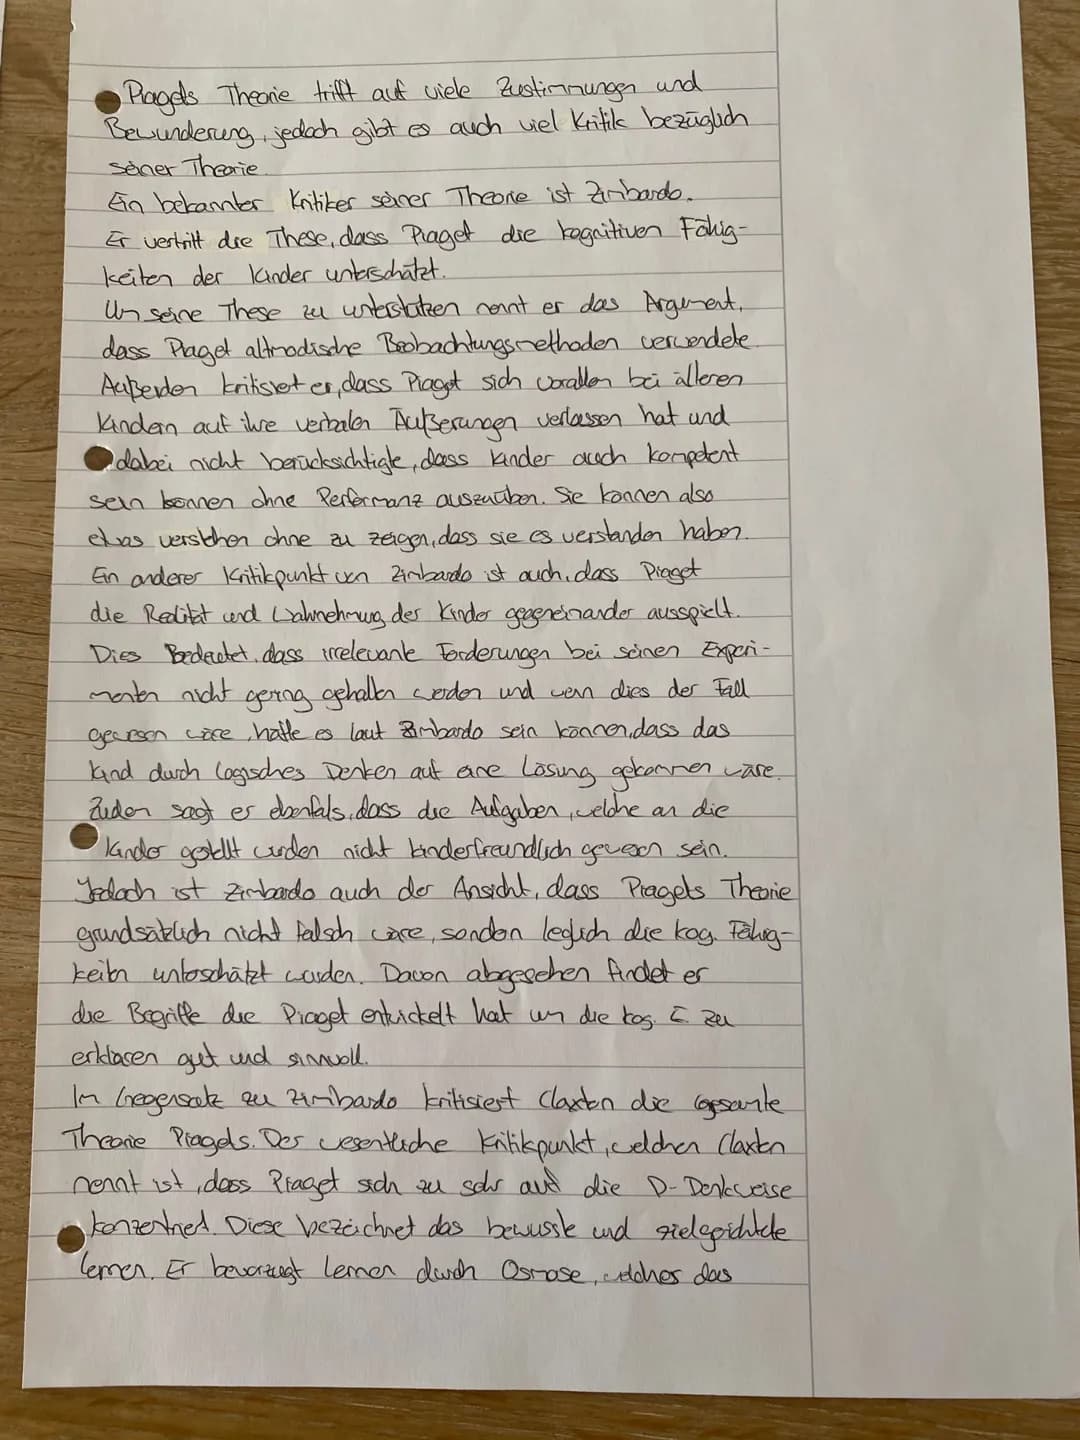 Piagets Theorie trifft auf viele Zustimmungen und
Bewunderung, jedoch gibt es auch viel Kritik bezüglich
seiner Theorie.
Ein bekannter Kritiker seiner Theorie ist Zimbardo.
Er vertritt die These, dass Piaget die kognitiven Fähig-
keiten der Kinder unterschätzt.
Um seine These zu unterstützen nennt er das Argument,
dass Piaget altmodische Beobachtungsmethoden verwendete.
Außerdem kritisiert er, dass Piaget sich vorallem bei älteren
Kindern auf ihre verbalen Äußerungen verlassen hat und
dabei nicht berücksichtigte, dass Kinder auch kompetent
sein können ohne Performanz auszuüben. Sie können also
etwas verstehen ohne zu zeigen, dass sie es verstanden haben.
Ein anderer Kritikpunkt von Zimbardo ist auch, dass Piaget
die Realität und Wahnehmug der Kinder gegeneinander ausspielt.
Dies Bedeutet, dass irrelevante Forderungen bei seinen Experi-
menten nicht gering gehalten werden und wenn dies der Fall
gewesen wäre, hätte es laut Zimbardo sein können, dass das
Kind durch logisches Denken auf eine Lösung gekommen wäre.
Zudem sagt er ebenfals, dass die Aufgaben, welche an die
Kinder gestellt wurden nicht kinderfreundlich gewesen sein.
Jedoch ist Zimbardo auch der Ansicht, dass Piagets Theorie
grundsätzlich nicht falsch wäre, sondern leglich die kog. Fähig-
keiten unterschätzt wurden. Davon abgesehen findet er
die Begriffe die Piaget entwickelt hat um die kog. E zu
erklären gut und sinnvoll.
Im Gegensatz zu Zimbardo kritisiert Claxton die gesamte
Theorie Piagets. Der wesentliche Kritikpunkt, welchen Claxton
nennt ist, dass Piaget sich zu sehr auf die D-Denkweise
konzentriert. Diese bezeichnet das bewusste und zielgerichtete
lernen. Er bevorzugt lernen durch Osmose, welches das